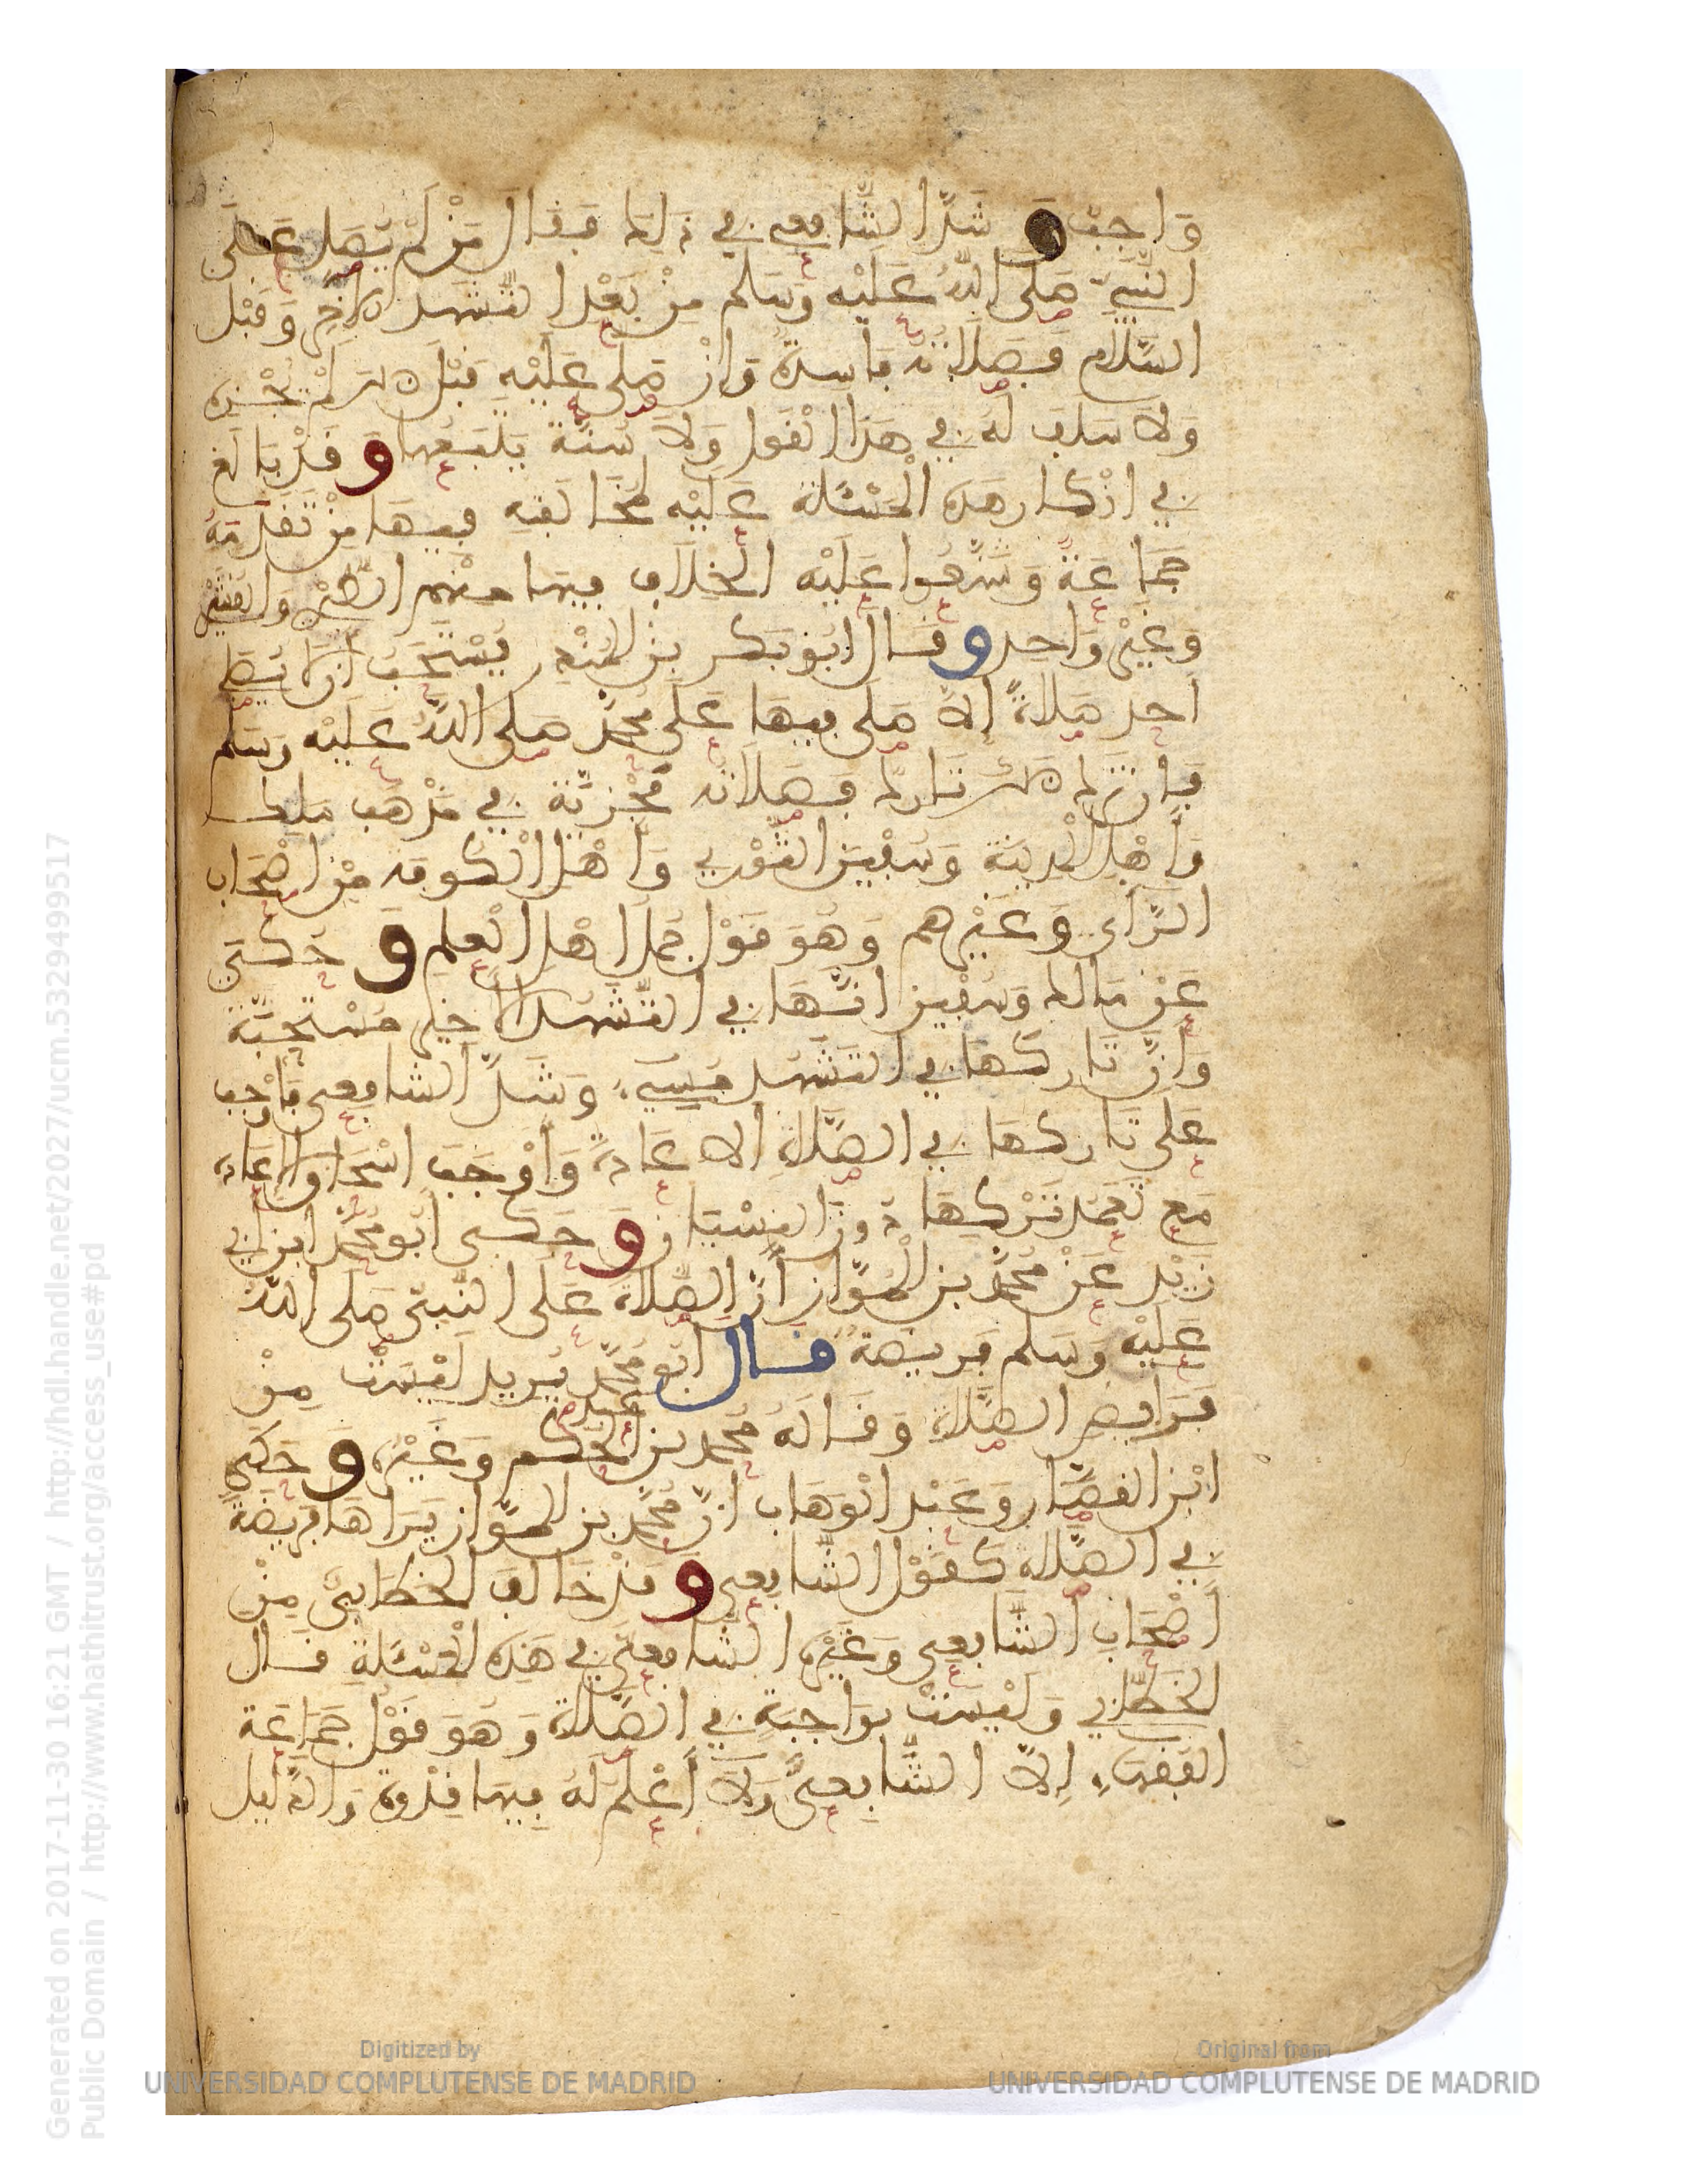 وَاجِب وَ شَذّ الشَّافعي في ذَلِكَ فَقَالَ مَنْ لَمْ يُصَلِ عَلَى
النَّبِيّ صَلى اللهُ عَلَيْه وَسَلم مِنْ بَعْد التَّشَهد الاَخِرِ وَقَبْل
السَّلام فَصَلَاتُه فَاسِدة وَاِنْ صَلى عَلَيْهِ قَبْل ذلك لَمْ تُجْزِه
وَلاَ سَلَف لَهُ في هَذا القَول وَلاَ سُنَّة يَتَّبَعُها وَ قَدْ بَالَغ
في انْكار هَذه المَسْئَلة عَلَيْه لمُخَالَفَتِهِ فيهَا مِنْ تَقَدّمَهُ
جَمَاعَةٌ وَشَنَّعُوا عَلَيْه الخِلَاف فيها منْهم الطَّبَري وَالقُشَيْري
وَغَيْر وَاحِد وقَالَ ابُو بَكر بن المُنْذر يُسْتَحَب اَن لا يُصَلي
احد صَلاةً اِلاّ صَلى فيهَا عَلَى مُحَمّد صَلى اللهُ عَلَيْه وَسَلم
فَاِن تَرَكَ ذَلك تَارك فَصَلَاتُه مُجْزِئَة في مَذْهَب مَالِك
وَأهْل المَدينَة وَسُفْيَن الثَّوْري وَأهْل الْكُوفة مِنْ اَصْحَاب
الرَّأي وَغَيْرهم وَهُوَ قَوْل جُمَل اهْل العِلم وَ حُكيَ
عَنْ مَالك وَسُفْيَن انَّهَا في التَّشَهد الأَخِير مُسْتَحَبَّة
وَأنَّ تَاركهَا في التَشَهُد مُسِيءٌ وَشَذَّ الشافعي فَاَوْجَب
عَلى تَاركهَا في الصَّلَاةِ الاعَادةَ وَأوْجَبَ اسْحَاق الاِعَادة
مَعَ تَعَمُد تَرْكِهَا دونَ النِسْيَان وَ حَكى ابُو مُحَمّد ابن ابي
زَيْد عَنْ مُحَمّد بن المَوَّاز أنّ الصَّلاة عَلَى النَّبيّ صَلى اللهُ
عَلَيْه وَسَلم فَريضَة قَال ابُو مُحَمّد يُريد لَيْسَتْ مِنْ
فَرَائِض الصَّلَاة وَقَالَهُ مُحَمد بن عبد الحَكم وَغَيْره وَ حَكَى
ابْن القَصَّار وَعَبْد الْوَهَاب انّ مُحَمّد بن المَوَّاز يَرَاهَا فَريضَةً
في الصَّلاة كَقَوْل الشَّافعي وَ قَدْ خَالَف الخَطَّابيّ مِنْ
أَصْحَاب الشَّافعي وَغَيْره الشافعيّ في هَذِه الْمَسْئَلةِ قَال
الخَطَّابي وَلَيْسَتْ بوَاجِبَةٍ في الصَّلاة وَهُوَ قَوْل جَمَاعَة
الفُقَهَاءِ اِلاّ الشَّافعيَّ وَلاَ أعْلَم لَهُ فِيها قِدْوةً وَالدَّليل
Generated on 2017-11-30 16:21 GMT / http://hdl.handle.net/2027/ucm.5329499517
Public Domain / http://www.hathitrust.org/access_use#pd
Digitized by
UNIVERSIDAD COMPLUTENSE DE MADRID
Original from
UNIVERSIDAD COMPLUTENSE DE MADRID